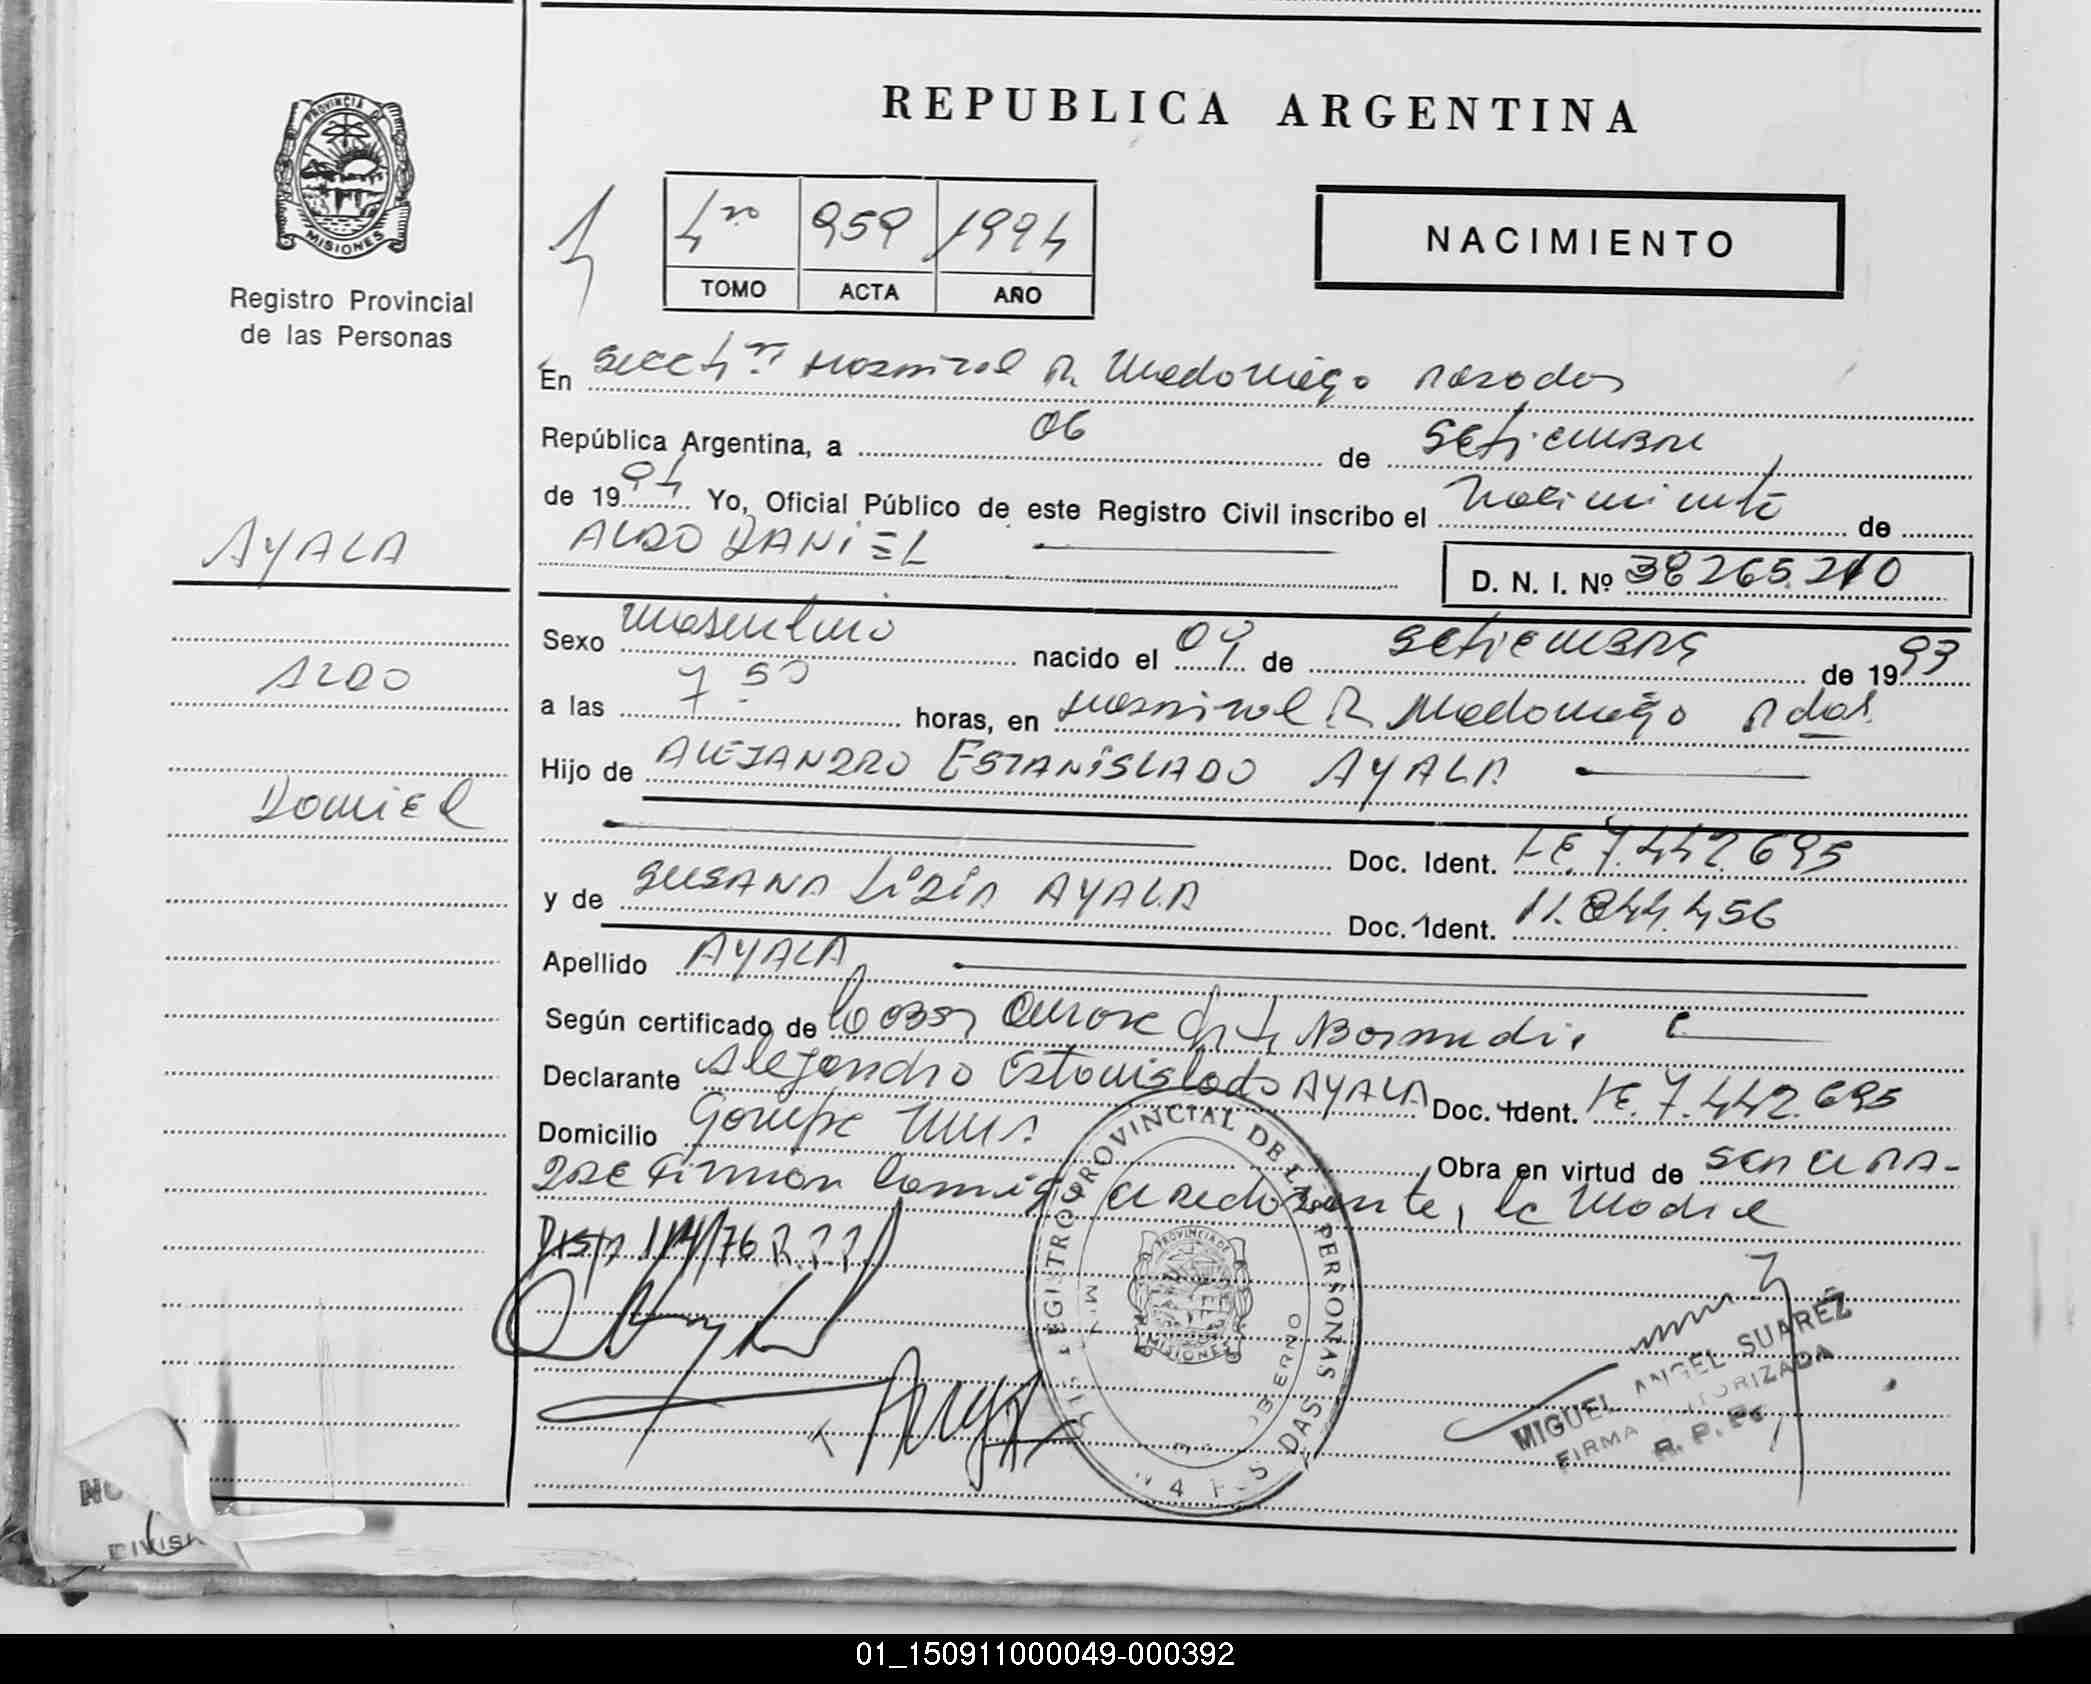 REPUBLICA ARGENTINA
PROVINCIA DE
MISIONES
Registro Provincial
de las Personas
4to 959 1994
TOMO ACTA AÑO
NACIMIENTO
En Secc 4ta Hospital R. Madariaga Posadas
República Argentina, a 06 de Setiembre
de 1994 Yo, Oficial Público de este Registro Civil inscribo el Nacimiento de
ALDO DANIEL
D. N. I. Nº 38265.210
AYALA
ALDO
Daniel
Sexo Masculino nacido el 04 de Setiembre de 1993
a las 7 50 horas, en Hospital R. Madariaga Pdas.
Hijo de ALEJANDRO ESTANISLADO AYALA
Doc. Ident. LE. 7.442.695
y de SUSANA LIDIA AYALA Doc. Ident. 11.844.456
Apellido AYALA
Según certificado de
Declarante Alejandro Estanislado AYALA Doc. Ident. LE. 7.442.695
Domicilio Garupá Mns.
Obra en virtud de
la Madre
REGISTRO PROVINCIAL DE LAS PERSONAS
PROVINCIA DE
MISIONES
POSADAS
MIGUEL ANGEL SUAREZ
FIRMA AUTORIZADA
R. P. P.
01_150911000049-000392